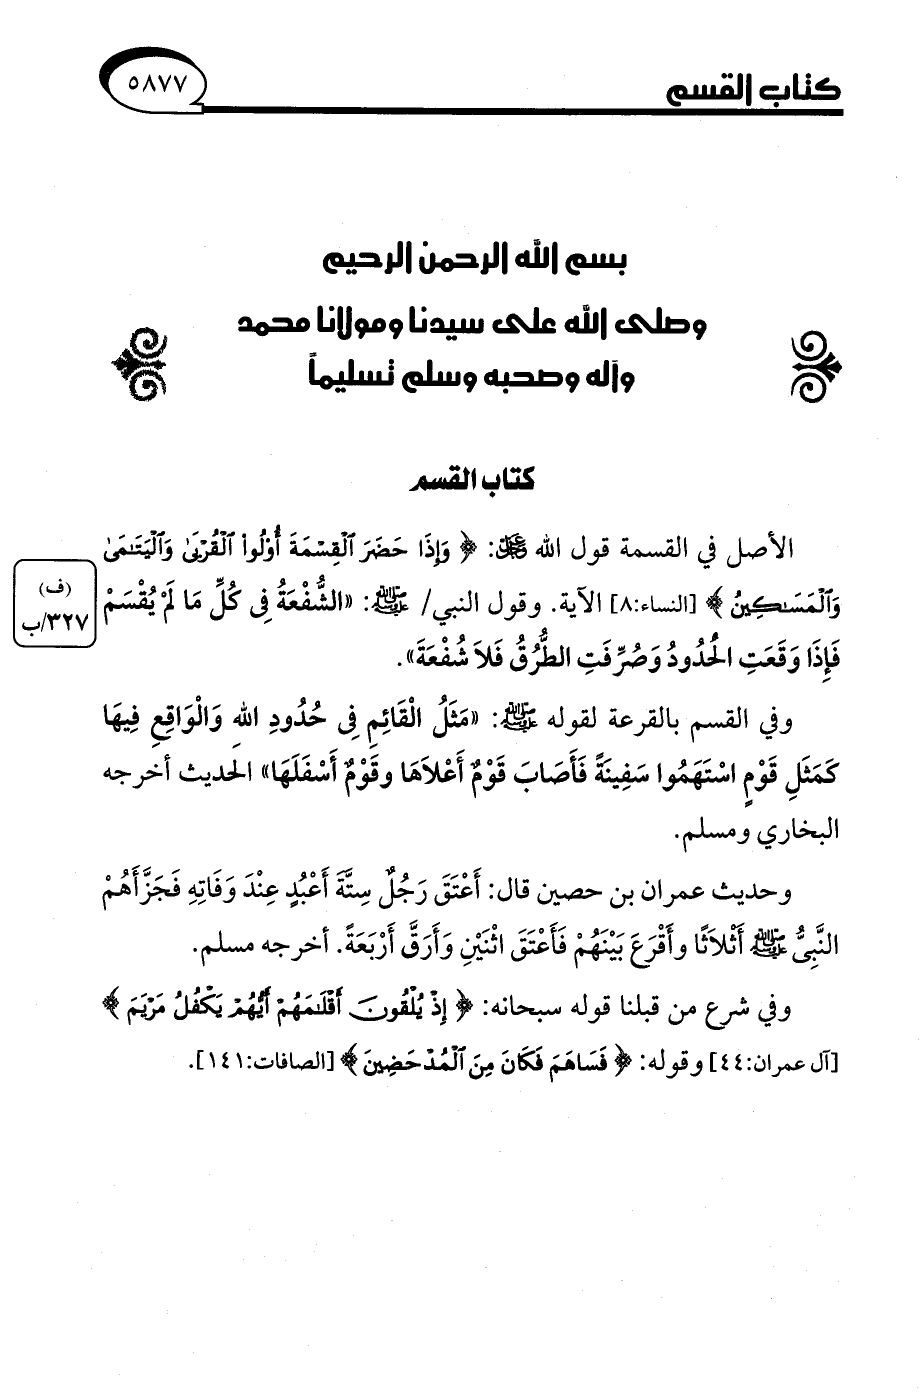 كتاب القسم
٥٨٧٧
بسم الله الرحمن الرحيم
وصلى الله على سيدنا ومولانا محمد
وآله وصحبه وسلم تسليماً
كتاب القسم
الأصل في القسمة قول الله ﷻ: ﴿ وَإِذَا حَضَرَ ٱلْقِسْمَةَ أُوْلُوا۟ ٱلْقُرْبَىٰ وَٱلْيَتَـٰمَىٰ
وَٱلْمَسَـٰكِينُ ﴾ [النساء:٨] الآية. وقول النبي/ ﷺ: «الشُّفْعَةُ فِي كُلِّ مَا لَمْ يُقْسَمْ
(ف)
٣٢٧/ب
فَإِذَا وَقَعَتِ الْحُدُودُ وَصُرِّفَتِ الطُّرُقُ فَلاَ شُفْعَةَ».
وفي القسم بالقرعة لقوله ﷺ: «مَثَلُ الْقَائِمِ فِي حُدُودِ اللهِ وَالْوَاقِعِ فِيهَا
كَمَثَلِ قَوْمٍ اسْتَهَمُوا سَفِينَةً فَأَصَابَ قَوْمٌ أَعْلاَهَا وقَوْمٌ أَسْفَلَهَا» الحديث أخرجه
البخاري ومسلم.
وحديث عمران بن حصين قال: أَعْتَقَ رَجُلٌ سِتَّةَ أَعْبُدٍ عِنْدَ وَفَاتِهِ فَجَزَّأَهُمْ
النَّبِيُّ ﷺ أَثْلاَثًا وأَقْرَعَ بَيْنَهُمْ فَأَعْتَقَ اثْنَيْنِ وَأَرَقَّ أَرْبَعَةً. أخرجه مسلم.
وفي شرع من قبلنا قوله سبحانه: ﴿ إِذْ يُلْقُونَ أَقْلَـٰمَهُمْ أَيُّهُمْ يَكْفُلُ مَرْيَمَ ﴾
[آل عمران:٤٤] وقوله: ﴿ فَسَاهَمَ فَكَانَ مِنَ ٱلْمُدْحَضِينَ ﴾ [الصافات:١٤١].